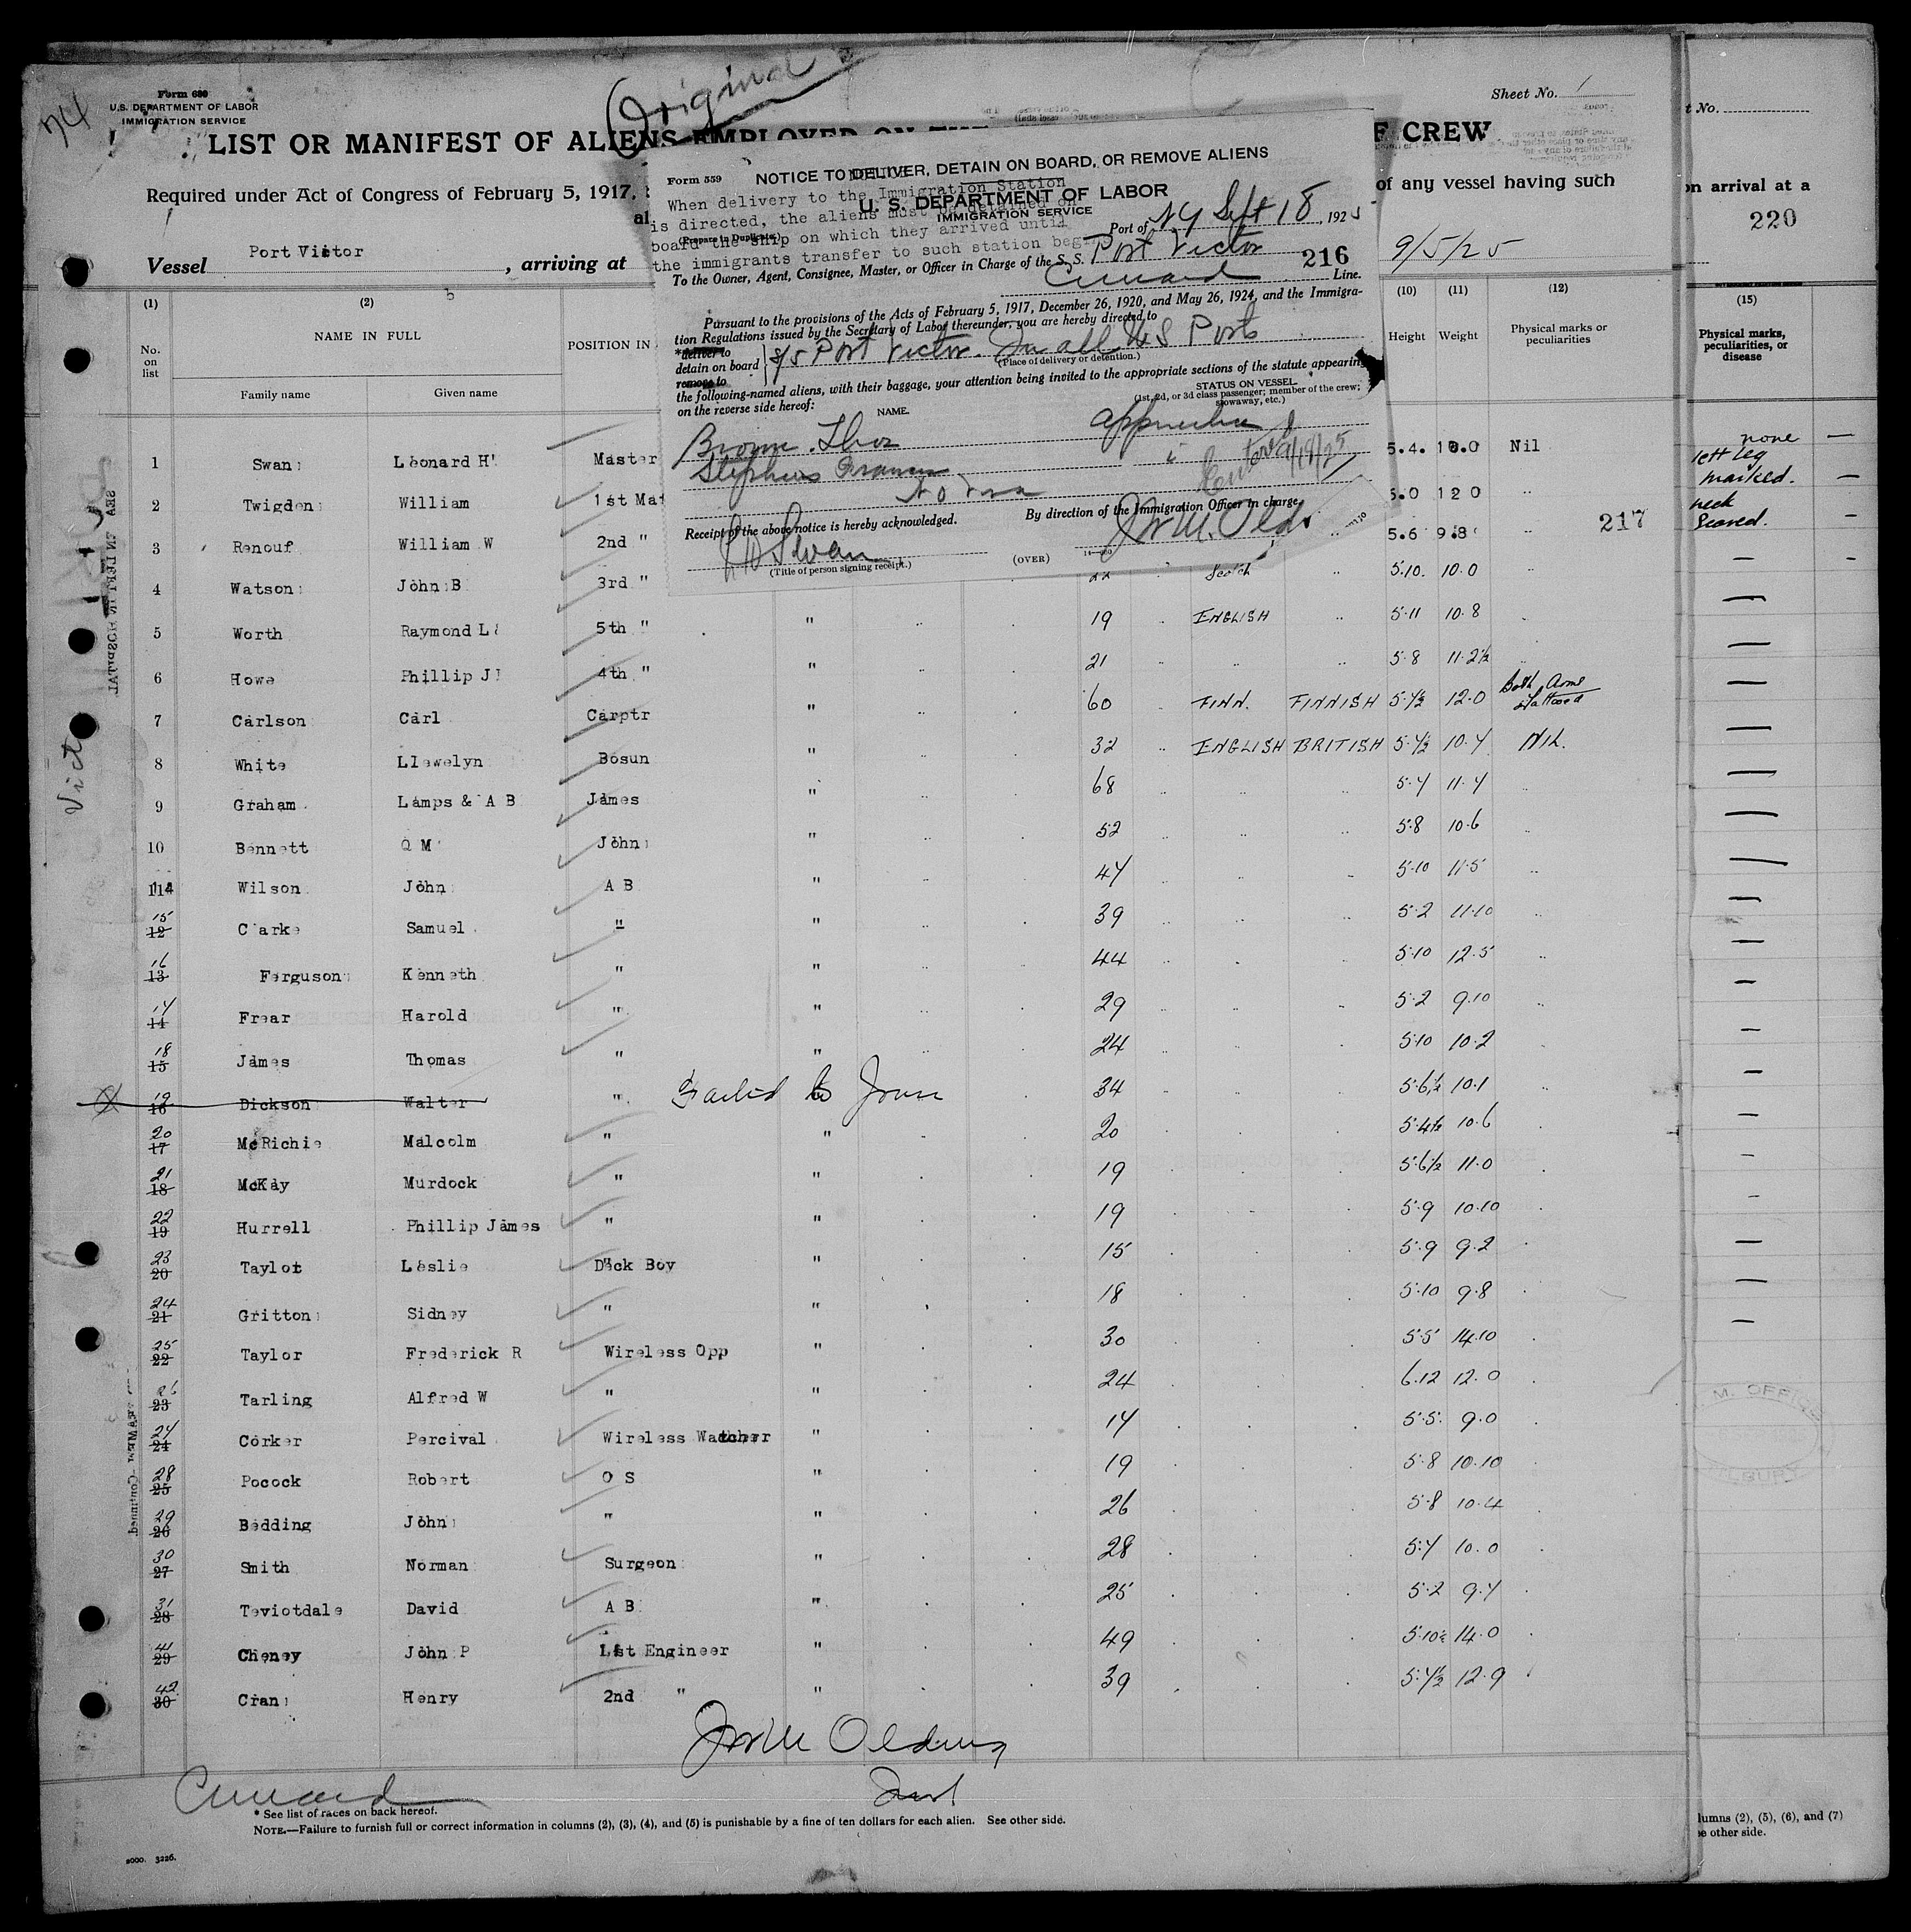 Original
74
Form 680
U.S. DEPARTMENT OF LABOR
IMMIGRATION SERVICE
Sheet No. 1
LIST OR MANIFEST OF ALIENS EMPLOYED ON THE
F CREW
Required under Act of Congress of February 5, 1917,
of any vessel having such
on arrival at a
220
Vessel Port Victor, arriving at
9/5/25
Form 559
NOTICE TO DELIVER, DETAIN ON BOARD, OR REMOVE ALIENS
When delivery to the Immigration Station
U. S. DEPARTMENT OF LABOR
is directed, the aliens must be detained on
IMMIGRATION SERVICE
(Prepare in Duplicate)
board the ship on which they arrived until
Port of N Y Sept 18, 192
the immigrants transfer to such station begin
To the Owner, Agent, Consignee, Master, or Officer in Charge of the S. S. Port Victor 216
Cunard Line.
Pursuant to the provisions of the Acts of February 5, 1917, December 26, 1920, and May 26, 1924, and the Immigra-
tion Regulations issued by the Secretary of Labor thereunder, you are hereby directed to
*deliver to
detain on board
remove to
S/S Port Victor. In all U S Ports
(Place of delivery or detention.)
the following-named aliens, with their baggage, your attention being invited to the appropriate sections of the statute appearing
on the reverse side hereof:
NAME.
STATUS ON VESSEL
(1st, 2d, or 3d class passenger; member of the crew;
stowaway, etc.)
Stephens
9/18/25
Receipt of the above notice is hereby acknowledged.
By direction of the Immigration Officer in charge,
L H Swan
(Title of person signing receipt.)
(OVER)
(1) (2) (10) (11) (12) (15)
No. on list
NAME IN FULL
Family name Given name
POSITION IN
Height Weight Physical marks or peculiarities
Physical marks, peculiarities, or disease
1 Swan Leonard H Master 5.4. 10.0 Nil none
left leg
marked.
2 Twigden William 1st Mat 5.0 120
neck
Scared.
217
3 Renouf William W 2nd " 5.6 9.8
4 Watson John B 3rd " 22 Scotch 5.10. 10.0
5 Worth Raymond L 5th " " 19 ENGLISH 5.11 10.8
6 Howe Phillip J 4th " " 21 5.8 11.2½
7 Carlson Carl Carptr " 60 FINN. FINNISH 5.7½ 12.0 Both Arms Tattooed
8 White Llewelyn Bosun " 32 ENGLISH BRITISH 5.7½ 10.7 NIL.
9 Graham Lamps & A B James " 68 5.7 11.7
10 Bennett Q M John " 52 5.8 10.6
114 Wilson John A B " 47 5.10 11.5
15 12 Clarke Samuel " " 39 5.2 11.10
16 13 Ferguson Kenneth " " 44 5.10 12.5
17 14 Frear Harold " " 29 5.2 9.10
18 15 James Thomas " " 24 5.10 10.2
19 16 Dickson Walter " Failed to Join 34 5.6½ 10.1
20 17 McRichie Malcolm " " 20 5.4½ 10.6
21 18 McKay Murdock " " 19 5.6½ 11.0
22 19 Hurrell Phillip James " " 19 5.9 10.10
23 20 Taylor Leslie Deck Boy " 15 5.9 9.2
24 21 Gritton Sidney " " 18 5.10 9.8
25 22 Taylor Frederick R Wireless Opp " 30 5.5 14.10
26 23 Tarling Alfred W " " 24 6.12 12.0
27 24 Corker Percival Wireless Watcher " 17 5.5. 9.0
28 25 Pocock Robert O S " 19 5.8 10.10
29 26 Bedding John " " 26 5.8 10.4
30 27 Smith Norman Surgeon " 28 5.7 10.0
31 28 Teviotdale David A B " 25 5.2 9.7
41 29 Cheney John P 1st Engineer " 49 5.10½ 14.0
42 30 Cran Henry 2nd " " 39 5.7½ 12.9
Vict
SEA IN LIEU OF HOSPITAL
SEAMEN—Continued.
M. OFFICE
TILBURY
Cunard
* See list of races on back hereof.
NOTE.—Failure to furnish full or correct information in columns (2), (3), (4), and (5) is punishable by a fine of ten dollars for each alien. See other side.
lumns (2), (5), (6), and (7)
e other side.
2000. 3226.